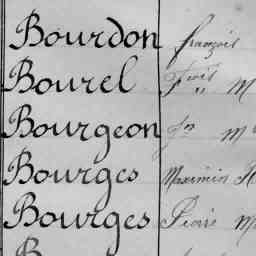 Bourdon François
Bourel Fçois M
Bourgeon Jn M
Bourges Maximin
Bourges Pierre M